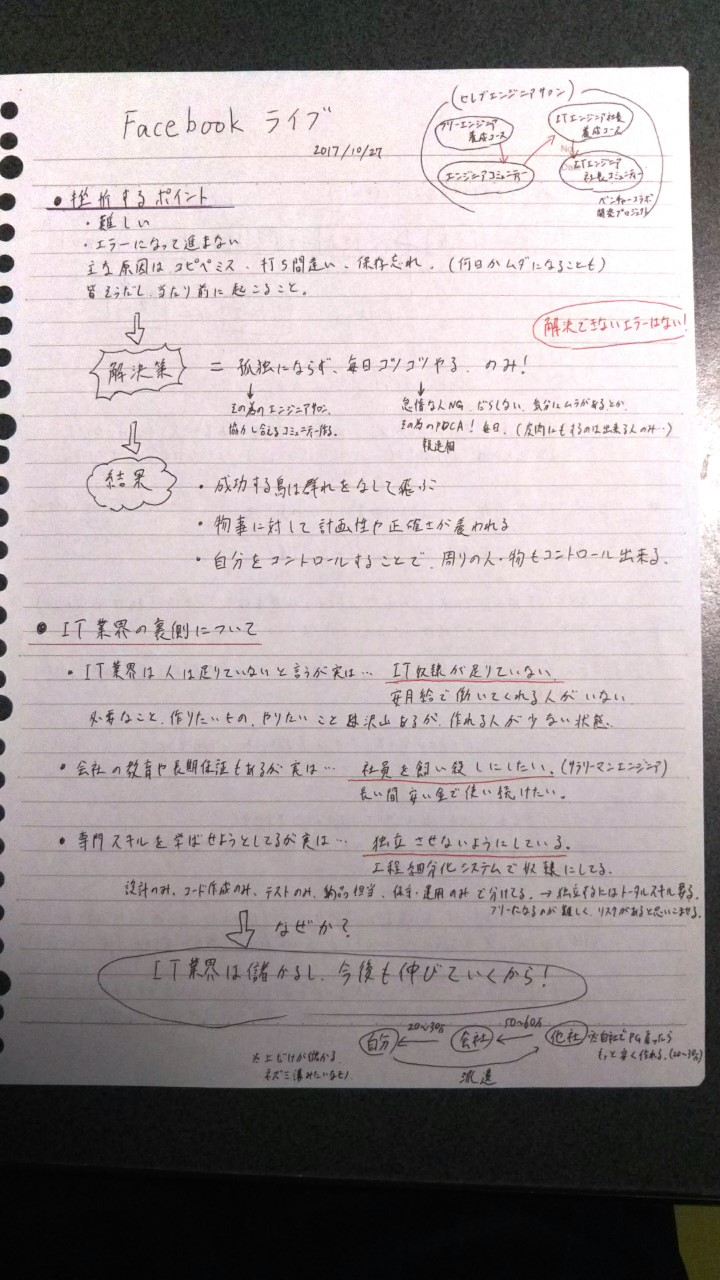 Facebook ライブ
2017/10/27
(セレブエンジニアサロン)
フリーエンジニア
養成コース
ITエンジニア社長
養成コース
エンジニアコミュニティー
ITエンジニア
社長コミュニティー
ベンチャーコラボ
開発プロジェクト
● 挫折するポイント
・難しい
・エラーになって進まない
主な原因はコピペミス、打ち間違い、保存忘れ。(何日かムダになることも)
皆そうだし、当たり前に起こること。
解決できないエラーはない!
解決策 = 孤独にならず、毎日コツコツやる、のみ!
その為のエンジニアサロン。
協力し合えるコミュニティー作る。
怠惰な人NG、だらしない、気分にムラがあるとか、
その為のPDCA!毎日、(皮肉にもするのは出来る人のみ…)
報連相
結果
・成功する鳥は群れをなして飛ぶ
・物事に対して計画性や正確さが養われる
・自分をコントロールすることで、周りの人・物もコントロール出来る。
● IT業界の裏側について
・IT業界は人は足りていないと言うが実は… IT奴隷が足りていない
安月給で働いてくれる人がいない
必要なこと、作りたいもの、やりたいことは沢山あるが、作れる人が少ない状態。
・会社の教育や長期保証もあるが実は… 社員を飼い殺しにしたい。(サラリーマンエンジニア)
長い間安い金で使い続けたい。
・専門スキルを学ばせようとしてるが実は… 独立させないようにしている。
工程細分化システムで奴隷にしてる。
設計のみ、コード作成のみ、テストのみ、納品担当、保守・運用のみで分けてる。→ 独立するにはトータルスキル要る。
フリーになるのが難しく、リスクがあると思いこませる。
なぜか?
IT業界は儲かるし、今後も伸びていくから!
自分 ← 20~30万 会社 ← 50~60万 他社
派遣
※上だけが儲かる
ネズミ講みたいなもの
※自社でPG雇ったら
もっと安く作れる。